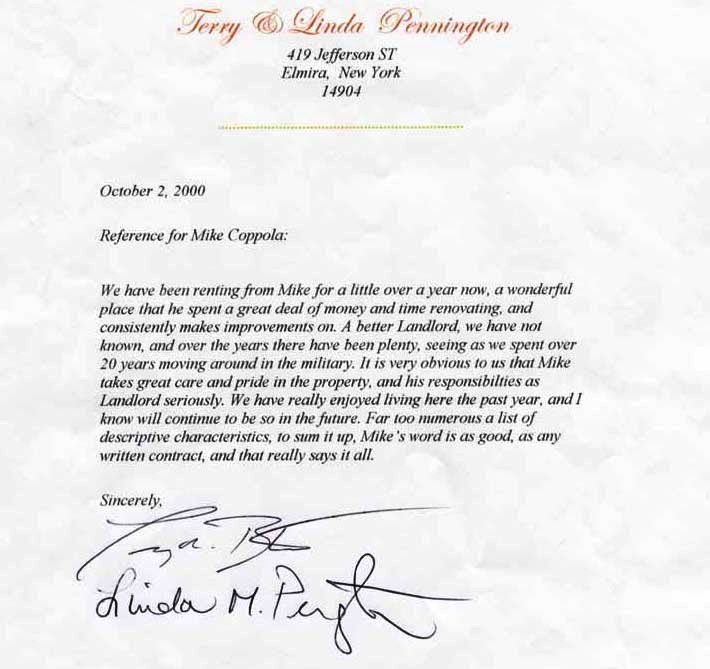 Terry & Linda Pennington
419 Jefferson ST
Elmira, New York
14904
October 2, 2000
Reference for Mike Coppola:
We have been renting from Mike for a little over a year now, a wonderful
place that he spent a great deal of money and time renovating, and
consistently makes improvements on. A better Landlord, we have not
known, and over the years there have been plenty, seeing as we spent over
20 years moving around in the military. It is very obvious to us that Mike
takes great care and pride in the property, and his responsibilties as
Landlord seriously. We have really enjoyed living here the past year, and I
know will continue to be so in the future. Far too numerous a list of
descriptive characteristics, to sum it up, Mike's word is as good, as any
written contract, and that really says it all.
Sincerely,
Linda M.